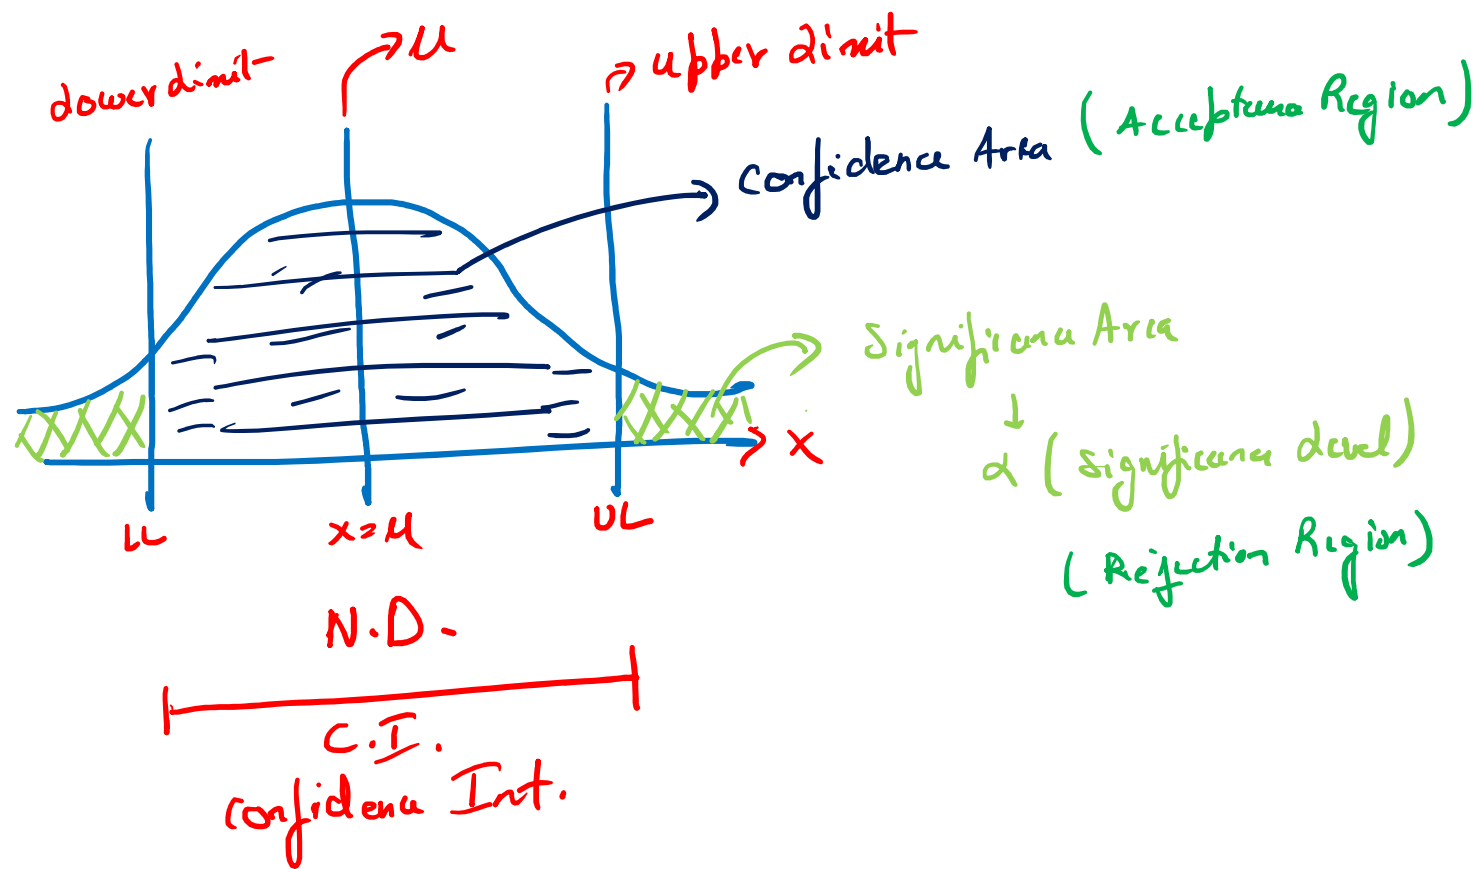 Lower Limit
μ
Upper Limit
Confidence Area (Acceptance Region)
Significance Area
α (Significance Level)
(Rejection Region)
X
LL
x=μ
UL
N.D.
C.I.
Confidence Int.